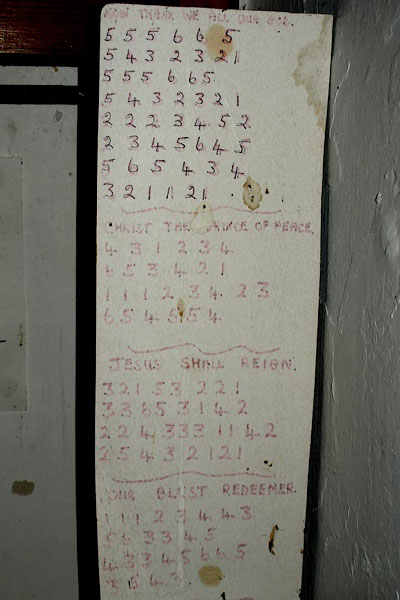 NOW THANK WE ALL OUR GOD.
5 5 5 6 6 5
5 4 3 2 3 2 1
5 5 5 6 6 5
5 4 3 2 3 2 1
2 2 2 3 4 5 2
2 3 4 5 6 4 5
5 6 5 4 3 4
3 2 1 1 2 1
CHRIST THE PRINCE OF PEACE.
4 3 1 2 3 4
6 5 3 4 2 1
1 1 1 2 3 4 2 3
6 5 4 5 5 4
JESUS SHALL REIGN.
3 2 1 5 3 2 2 1
3 3 6 5 3 1 4 2
2 2 4 3 3 3 1 1 4 2
2 5 4 3 2 1 2 1
OUR BLEST REDEEMER.
1 1 1 2 3 4 4 3
5 6 3 3 4 5
4 3 3 4 5 6 6 5
5 4 3